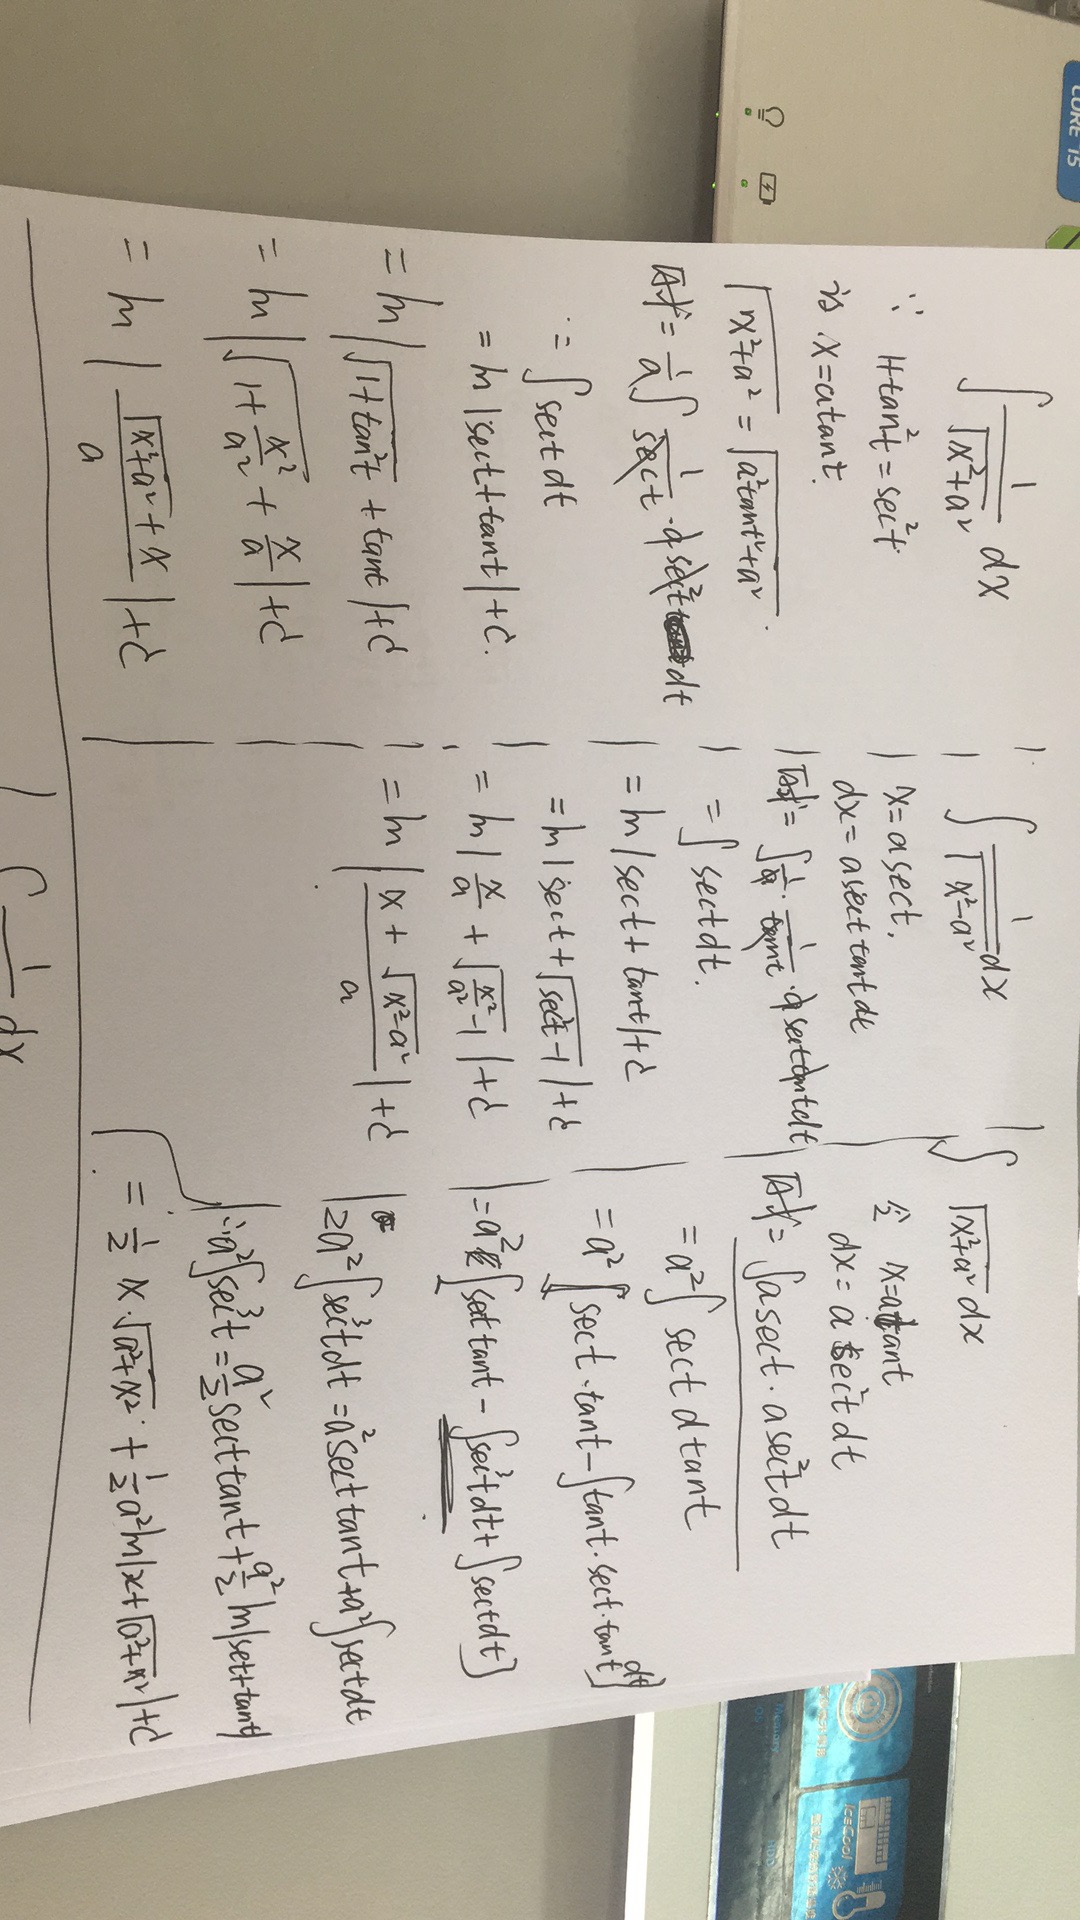 CORE i5
∫ 1/√(x²+a²) dx
∵ 1+tan²t = sec²t
设 x=atant.
√(x²+a²) = √(a²tant²+a²).
原式= 1/a ∫ 1/sect · a sec²t dt
= ∫ sect dt
= ln|sect+tant|+C.
= ln|√(1+tan²t) + tant|+C
= ln|√(1+x²/a²) + x/a|+C
= ln|(√(x²+a²)+x)/a|+C
∫ 1/√(x²-a²) dx
x=asect,
dx=asecttantdt
原式= ∫ 1/a · 1/tant · a secttantdt
= ∫ sectdt.
= ln|sect+tant|+C
= ln|sect+√(sec²t-1)|+C
= ln|x/a + √(x²/a²-1)|+C
= ln|(x+√(x²-a²))/a|+C
∫ √(x²+a²) dx
令 x=atant
dx=a sec²t dt
原式= ∫asect·asec²tdt
= a²∫ sect d tant
= a²[sect·tant-∫tant·sect·tant dt]
= a²[sect tant - ∫sec³tdt+∫sectdt]
2a²∫sec³tdt=a²secttant+a²∫sectdt
∴a²∫sec³t= a²/2 secttant+ a²/2 ln|sect+tant|
= 1/2 x·√(a²+x²) + 1/2 a²ln|x+√(a²+x²)|+C
∫ 1/ dx
Memory
HDD
IceCool